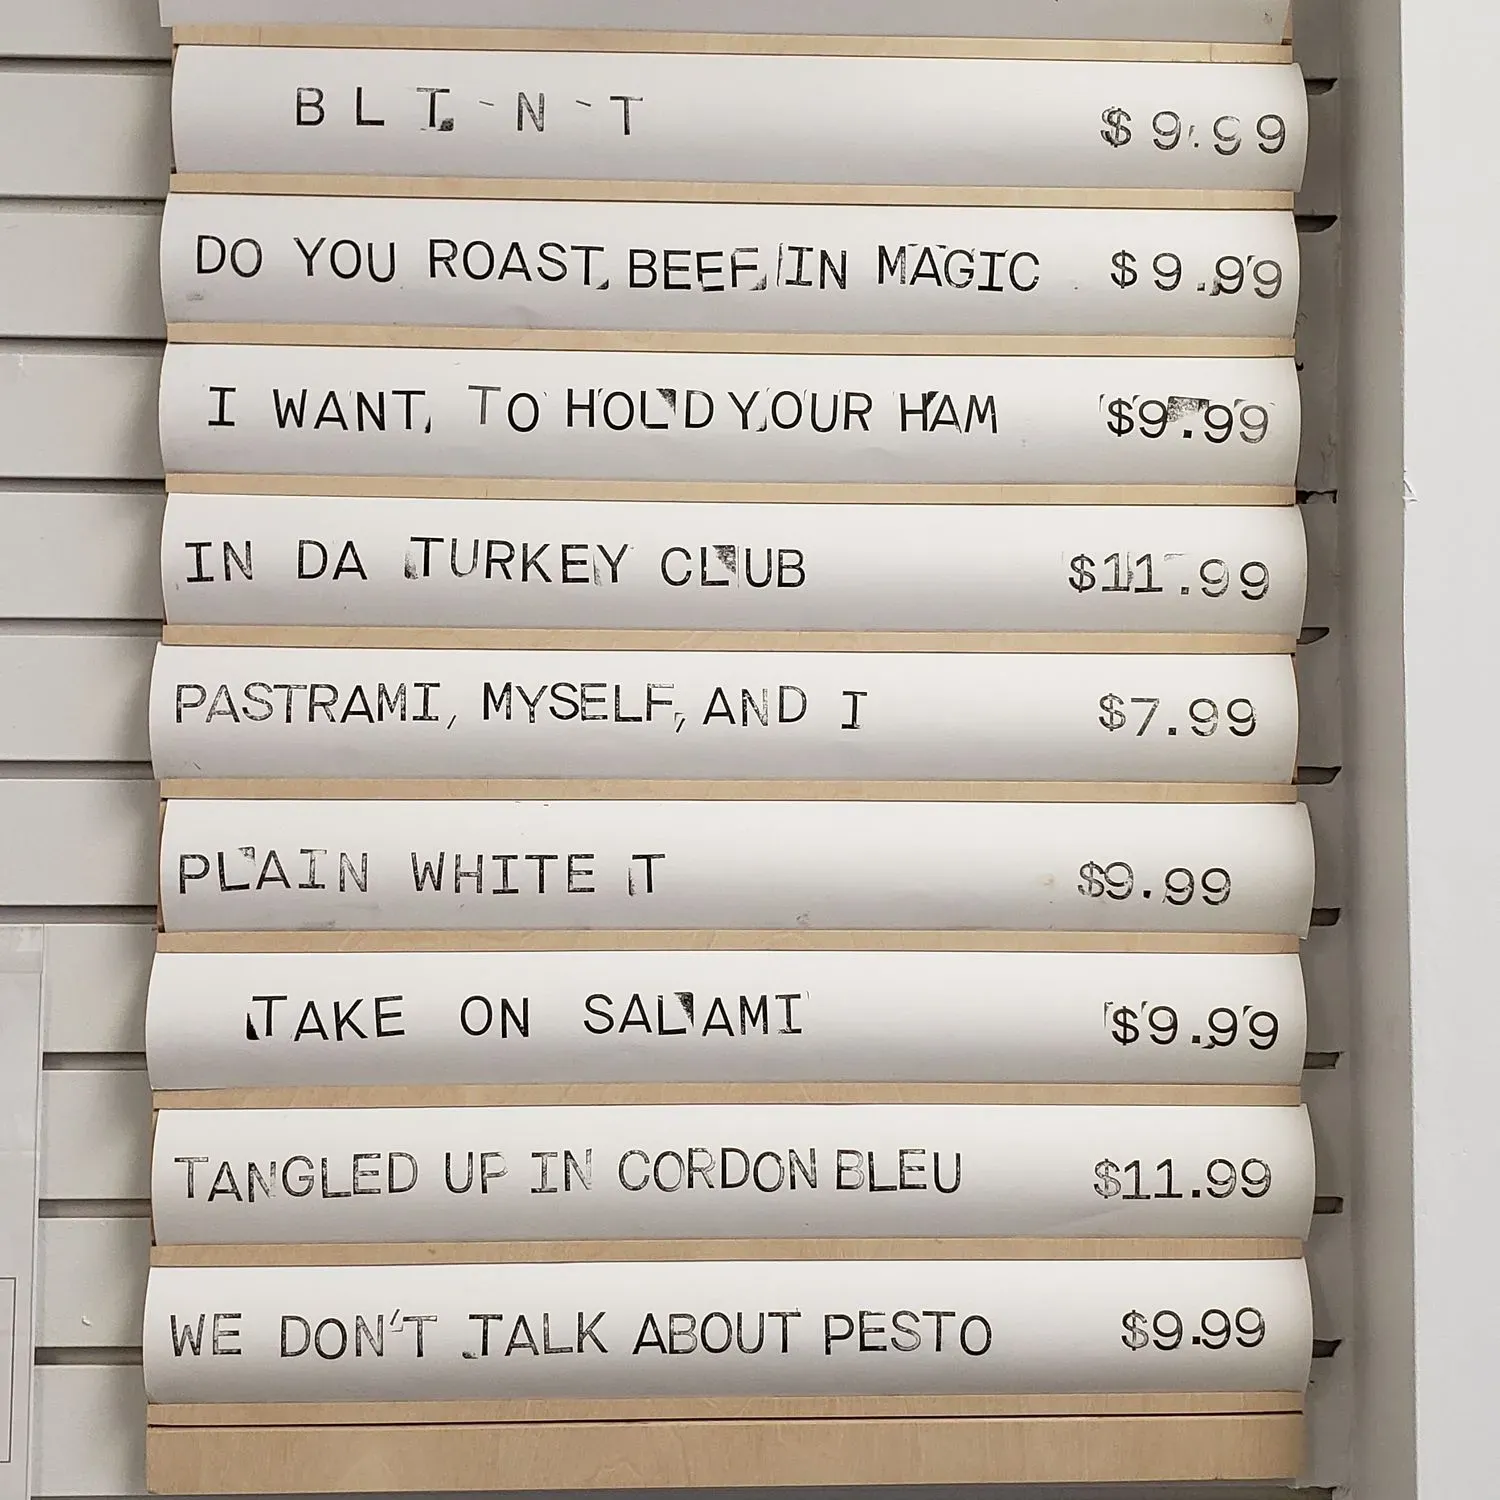 BLT-N-T $9.99
DO YOU ROAST BEEF IN MAGIC $9.99
I WANT TO HOLD YOUR HAM $9.99
IN DA TURKEY CLUB $11.99
PASTRAMI, MYSELF, AND I $7.99
PLAIN WHITE T $9.99
TAKE ON SALAMI $9.99
TANGLED UP IN CORDON BLEU $11.99
WE DON'T TALK ABOUT PESTO $9.99